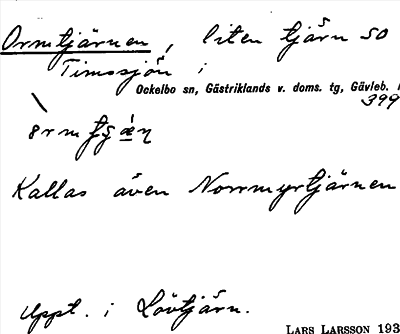 Ormtjärnen, liten tjärn SO
Timssjön i
Ockelbo sn, Gästriklands v. doms. tg, Gävleb.
399
Kallas även Norrmyrtjärnen
Uppt. i Lövtjärn.
LARS LARSSON 193